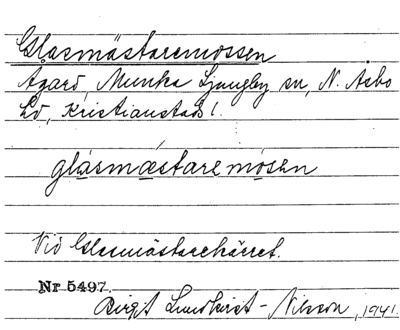 Glasmästaremossen
Agard, Munka Ljungby sn, N. Åsbo
hd, Kristianstads l.
glasmæstaremosen
Vid Glasmästarekärret.
Nr 5497.
Birgit Lundkvist-Nilsson, 1941.